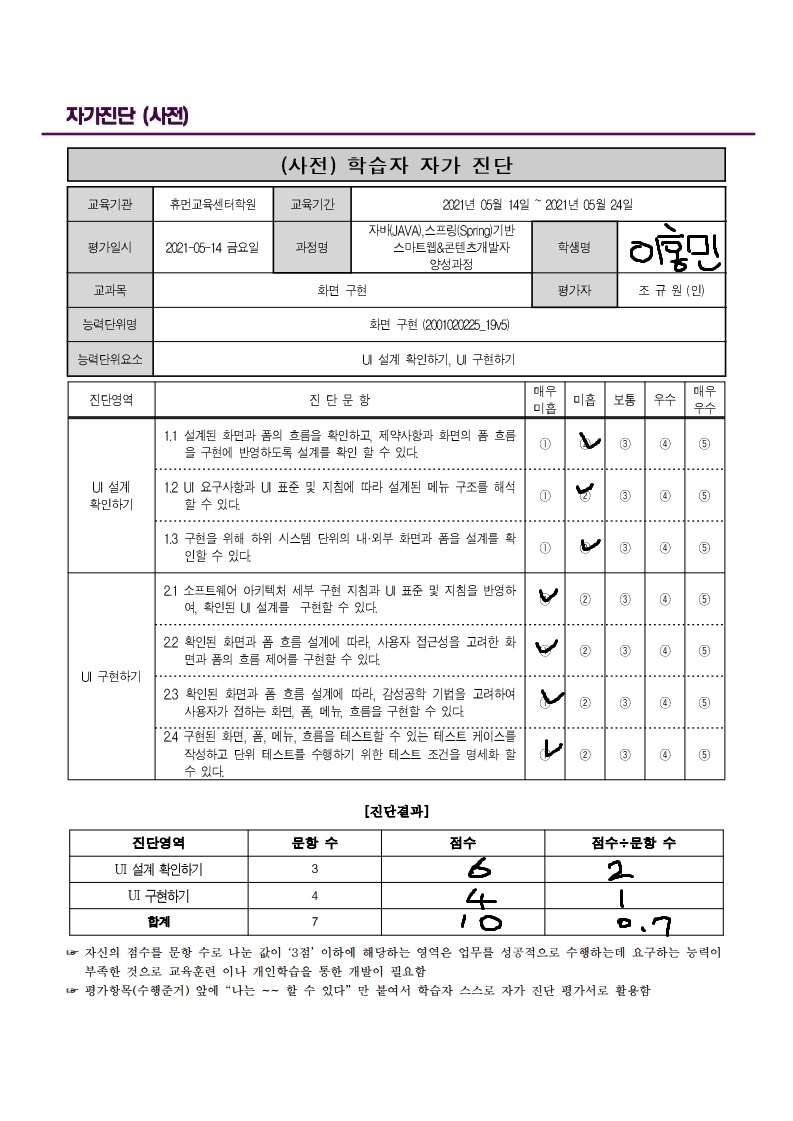 자가진단 (사전)
(사전) 학습자 자가 진단
교육기관 휴먼교육센터학원 교육기간 2021년 05월 14일 ~ 2021년 05월 24일
평가일시 2021-05-14 금요일 과정명 자바(JAVA),스프링(Spring)기반 스마트웹&콘텐츠개발자 양성과정 학생명 이홍민
교과목 화면 구현 평가자 조 규 원 (인)
능력단위명 화면 구현 (2001020225_19v5)
능력단위요소 UI 설계 확인하기, UI 구현하기
진단영역 진 단 문 항 매우 미흡 미흡 보통 우수 매우 우수
UI 설계 확인하기
1.1 설계된 화면과 폼의 흐름을 확인하고, 제약사항과 화면의 폼 흐름
을 구현에 반영하도록 설계를 확인 할 수 있다. ① ✓ ③ ④ ⑤
1.2 UI 요구사항과 UI 표준 및 지침에 따라 설계된 메뉴 구조를 해석
할 수 있다. ① ② ✓ ③ ④ ⑤
1.3 구현을 위해 하위 시스템 단위의 내·외부 화면과 폼을 설계를 확
인할 수 있다. ① ✓ ③ ④ ⑤
UI 구현하기
2.1 소프트웨어 아키텍처 세부 구현 지침과 UI 표준 및 지침을 반영하
여, 확인된 UI 설계를 구현할 수 있다. ✓ ② ③ ④ ⑤
2.2 확인된 화면과 폼 흐름 설계에 따라, 사용자 접근성을 고려한 화
면과 폼의 흐름 제어를 구현할 수 있다. ✓ ② ③ ④ ⑤
2.3 확인된 화면과 폼 흐름 설계에 따라, 감성공학 기법을 고려하여
사용자가 접하는 화면, 폼, 메뉴, 흐름을 구현할 수 있다. ✓ ② ③ ④ ⑤
2.4 구현된 화면, 폼, 메뉴, 흐름을 테스트할 수 있는 테스트 케이스를
작성하고 단위 테스트를 수행하기 위한 테스트 조건을 명세화 할
수 있다. ✓ ② ③ ④ ⑤
[진단결과]
진단영역 문항 수 점수 점수÷문항 수
UI 설계 확인하기 3 6 2
UI 구현하기 4 4 1
합계 7 10 0.7
☞ 자신의 점수를 문항 수로 나눈 값이 '3점' 이하에 해당하는 영역은 업무를 성공적으로 수행하는데 요구하는 능력이
부족한 것으로 교육훈련 이나 개인학습을 통한 개발이 필요함
☞ 평가항목(수행준거) 앞에 "나는 ~~ 할 수 있다" 만 붙여서 학습자 스스로 자가 진단 평가서로 활용함